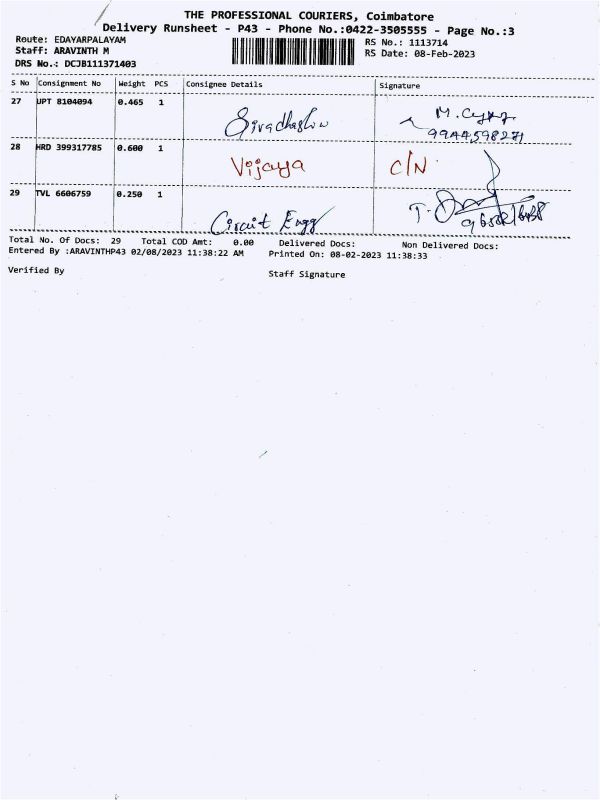 THE PROFESSIONAL COURIERS, Coimbatore
Delivery Runsheet - P43 - Phone No.:0422-3505555 - Page No.:3
Route: EDAYARPALAYAM
Staff: ARAVINTH M
DRS No.: DCJB111371403
RS No.: 1113714
RS Date: 08-Feb-2023
S No Consignment No Weight PCS Consignee Details Signature
27 UPT 8104094 0.465 1
9944598271
28 HRD 399317785 0.600 1 Vijaya C/N
29 TVL 6606759 0.250 1 Circuit Engg
Total No. Of Docs: 29 Total COD Amt: 0.00 Delivered Docs: Non Delivered Docs:
Entered By :ARAVINTHP43 02/08/2023 11:38:22 AM Printed On: 08-02-2023 11:38:33
Verified By Staff Signature